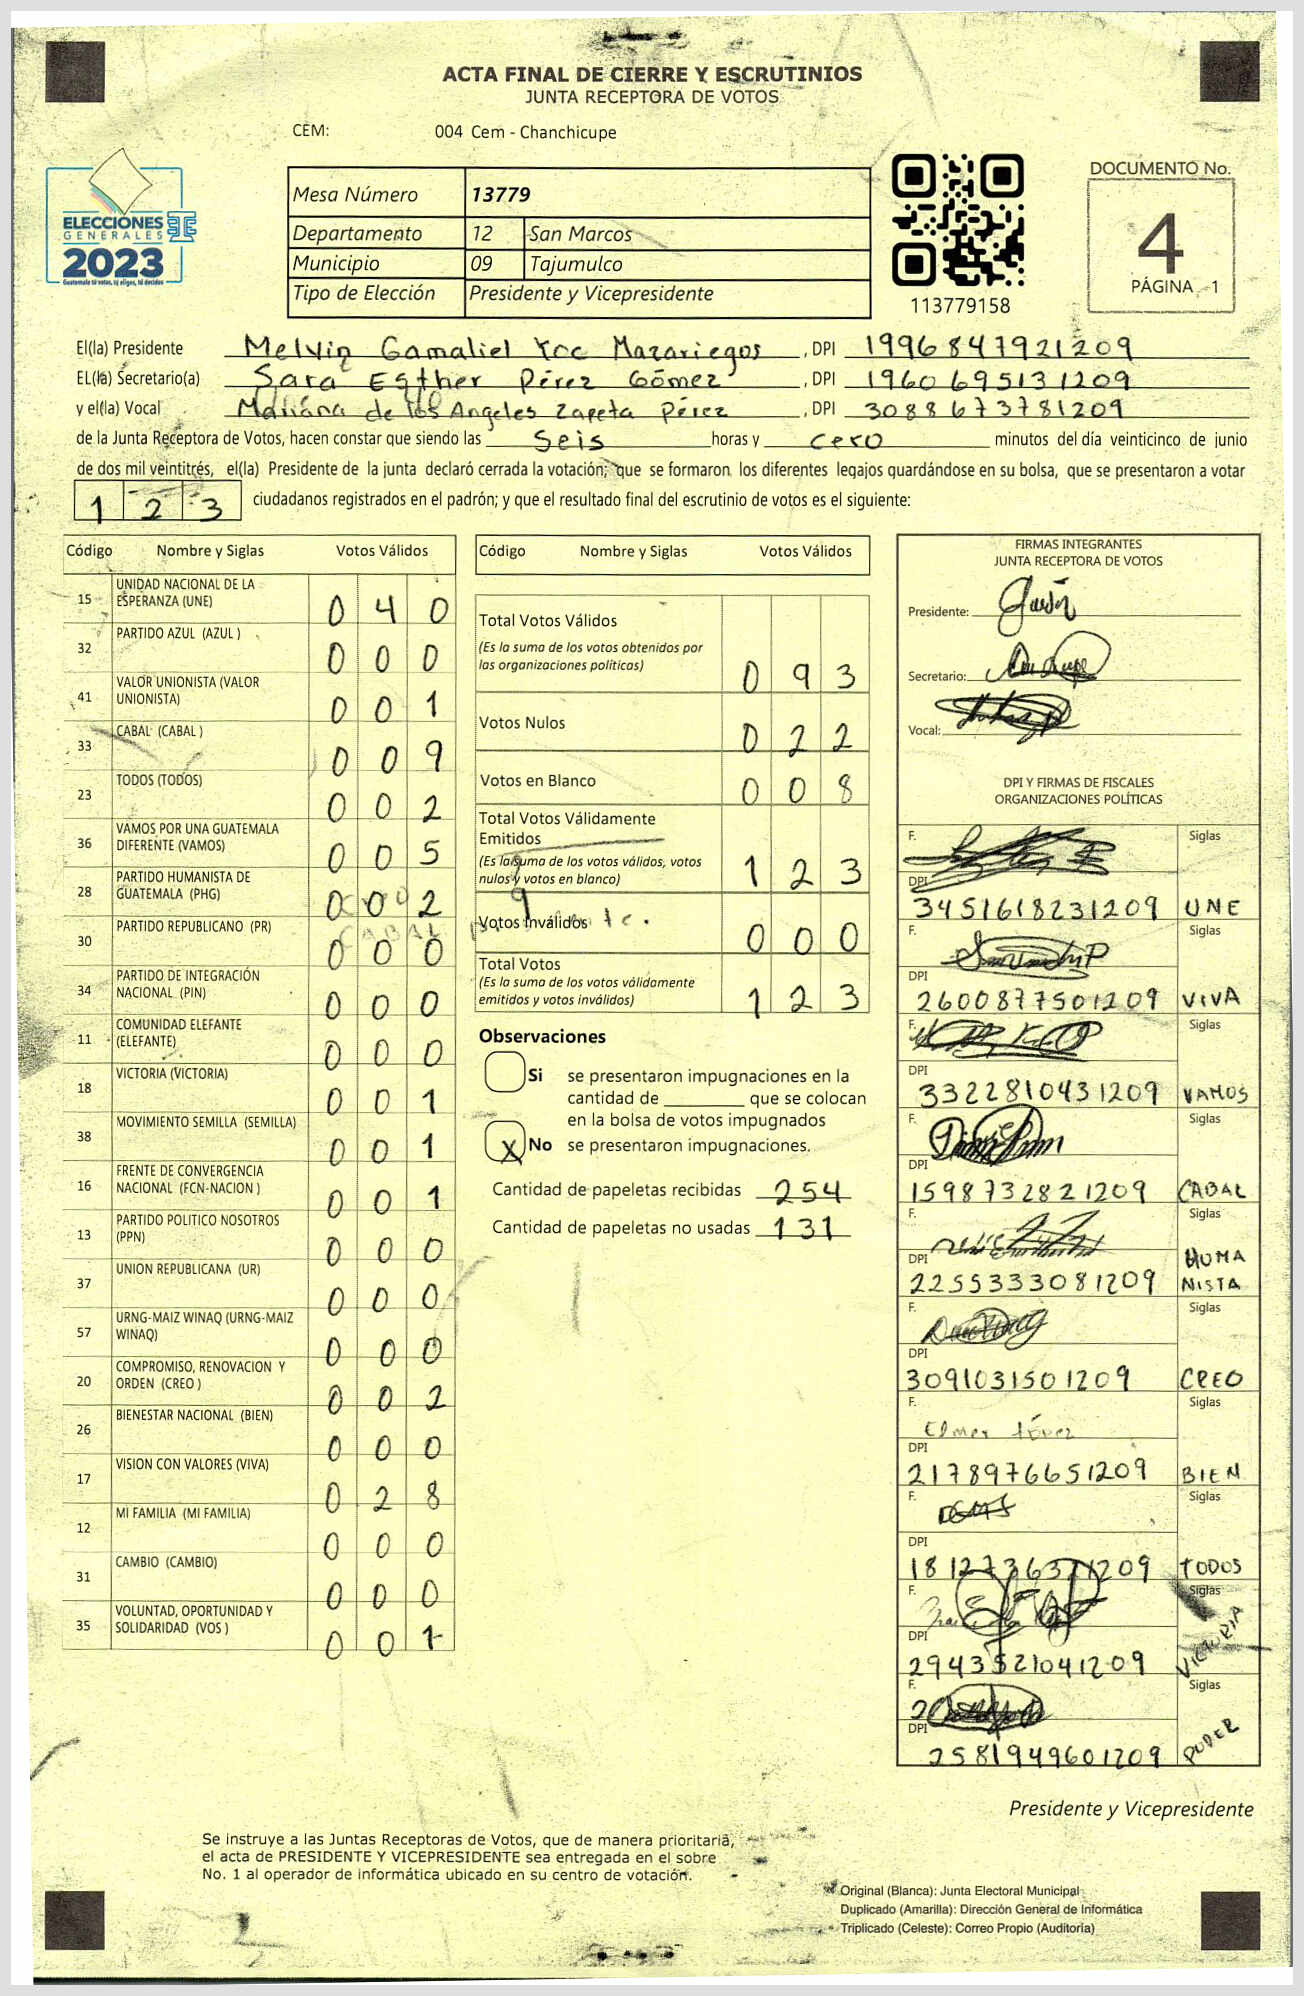 ACTA FINAL DE CIERRE Y ESCRUTINIOS
JUNTA RECEPTORA DE VOTOS
CEM: 004 Cem - Chanchicupe
ELECCIONES
GENERALES
2023
Guatemala tú votas, tú eliges, tú decides
Mesa Número 13779
Departamento 12 San Marcos
Municipio 09 Tajumulco
Tipo de Elección Presidente y Vicepresidente
113779158
DOCUMENTO No.
4
PÁGINA 1
El(la) Presidente Melvin Gamaliel Xoc Mazariegos , DPI 1996847921209
EL(la) Secretario(a) Sara Esther Pérez Gómez , DPI 1960695131209
y el(la) Vocal Mariana de los Angeles Zapeta Pérez , DPI 3088673781209
de la Junta Receptora de Votos, hacen constar que siendo las seis horas y cero minutos del día veinticinco de junio
de dos mil veintitrés, el(la) Presidente de la junta declaró cerrada la votación; que se formaron los diferentes legajos quardándose en su bolsa, que se presentaron a votar
1 2 3 ciudadanos registrados en el padrón; y que el resultado final del escrutinio de votos es el siguiente:
Código Nombre y Siglas Votos Válidos
15 UNIDAD NACIONAL DE LA ESPERANZA (UNE) 0 4 0
32 PARTIDO AZUL (AZUL ) 0 0 0
41 VALOR UNIONISTA (VALOR UNIONISTA) 0 0 1
33 CABAL (CABAL ) 0 0 9
23 TODOS (TODOS) 0 0 2
36 VAMOS POR UNA GUATEMALA DIFERENTE (VAMOS) 0 0 5
28 PARTIDO HUMANISTA DE GUATEMALA (PHG) 0 0 2
30 PARTIDO REPUBLICANO (PR) 0 0 0
34 PARTIDO DE INTEGRACIÓN NACIONAL (PIN) 0 0 0
11 COMUNIDAD ELEFANTE (ELEFANTE) 0 0 0
18 VICTORIA (VICTORIA) 0 0 1
38 MOVIMIENTO SEMILLA (SEMILLA) 0 0 1
16 FRENTE DE CONVERGENCIA NACIONAL (FCN-NACION ) 0 0 1
13 PARTIDO POLITICO NOSOTROS (PPN) 0 0 0
37 UNION REPUBLICANA (UR) 0 0 0
57 URNG-MAIZ WINAQ (URNG-MAIZ WINAQ) 0 0 0
20 COMPROMISO, RENOVACION Y ORDEN (CREO ) 0 0 2
26 BIENESTAR NACIONAL (BIEN) 0 0 0
17 VISION CON VALORES (VIVA) 0 2 8
12 MI FAMILIA (MI FAMILIA) 0 0 0
31 CAMBIO (CAMBIO) 0 0 0
35 VOLUNTAD, OPORTUNIDAD Y SOLIDARIDAD (VOS ) 0 0 1
Código Nombre y Siglas Votos Válidos
Total Votos Válidos
(Es la suma de los votos obtenidos por
las organizaciones políticas) 0 9 3
Votos Nulos 0 2 2
Votos en Blanco 0 0 8
Total Votos Válidamente
Emitidos
(Es la suma de los votos válidos, votos
nulos y votos en blanco) 1 2 3
Votos Inválidos 0 0 0
Total Votos
(Es la suma de los votos válidamente
emitidos y votos inválidos) 1 2 3
Observaciones
Si se presentaron impugnaciones en la
cantidad de ________ que se colocan
en la bolsa de votos impugnados
X No se presentaron impugnaciones.
Cantidad de papeletas recibidas 254
Cantidad de papeletas no usadas 131
FIRMAS INTEGRANTES
JUNTA RECEPTORA DE VOTOS
Presidente:
Secretario:
Vocal:
DPI Y FIRMAS DE FISCALES
ORGANIZACIONES POLÍTICAS
F. Siglas
DPI
3451618231209 UNE
F. Siglas
DPI
2600877501209 VIVA
F. Siglas
DPI
3322810431209 VAMOS
F. Siglas
DPI
1598732821209 CABAL
F. Siglas
DPI HUMA
2255333081209 NISTA
F. Siglas
DPI
3091031501209 CREO
F. Siglas
Elmer
DPI
2178976651209 BIEN
F. Siglas
DPI
1812736371209 TODOS
F. Siglas
DPI
2943521041209 VICTORIA
F. Siglas
DPI
2581949601209 PODER
Presidente y Vicepresidente
Se instruye a las Juntas Receptoras de Votos, que de manera prioritaria,
el acta de PRESIDENTE Y VICEPRESIDENTE sea entregada en el sobre
No. 1 al operador de informática ubicado en su centro de votación.
Original (Blanca): Junta Electoral Municipal
Duplicado (Amarilla): Dirección General de Informática
Triplicado (Celeste): Correo Propio (Auditoría)